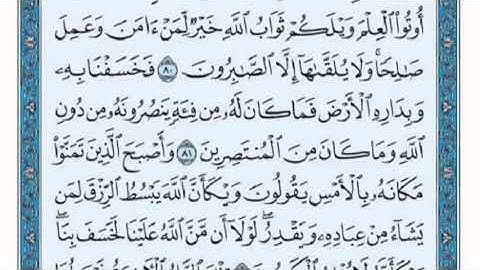 أُوتُوا۟ ٱلْعِلْمَ وَيْلَكُمْ ثَوَابُ ٱللَّهِ خَيْرٌ لِّمَنْ ءَامَنَ وَعَمِلَ
صَـٰلِحًا وَلَا يُلَقَّىٰهَآ إِلَّا ٱلصَّـٰبِرُونَ ٨٠ فَخَسَفْنَا بِهِۦ
وَبِدَارِهِ ٱلْأَرْضَ فَمَا كَانَ لَهُۥ مِن فِئَةٍ يَنصُرُونَهُۥ مِن دُونِ
ٱللَّهِ وَمَا كَانَ مِنَ ٱلْمُنتَصِرِينَ ٨١ وَأَصْبَحَ ٱلَّذِينَ تَمَنَّوْا۟
مَكَانَهُۥ بِٱلْأَمْسِ يَقُولُونَ وَيْكَأَنَّ ٱللَّهَ يَبْسُطُ ٱلرِّزْقَ لِمَن
يَشَآءُ مِنْ عِبَادِهِۦ وَيَقْدِرُ ۖ لَوْلَآ أَن مَّنَّ ٱللَّهُ عَلَيْنَا لَخَسَفَ بِنَا ۖ